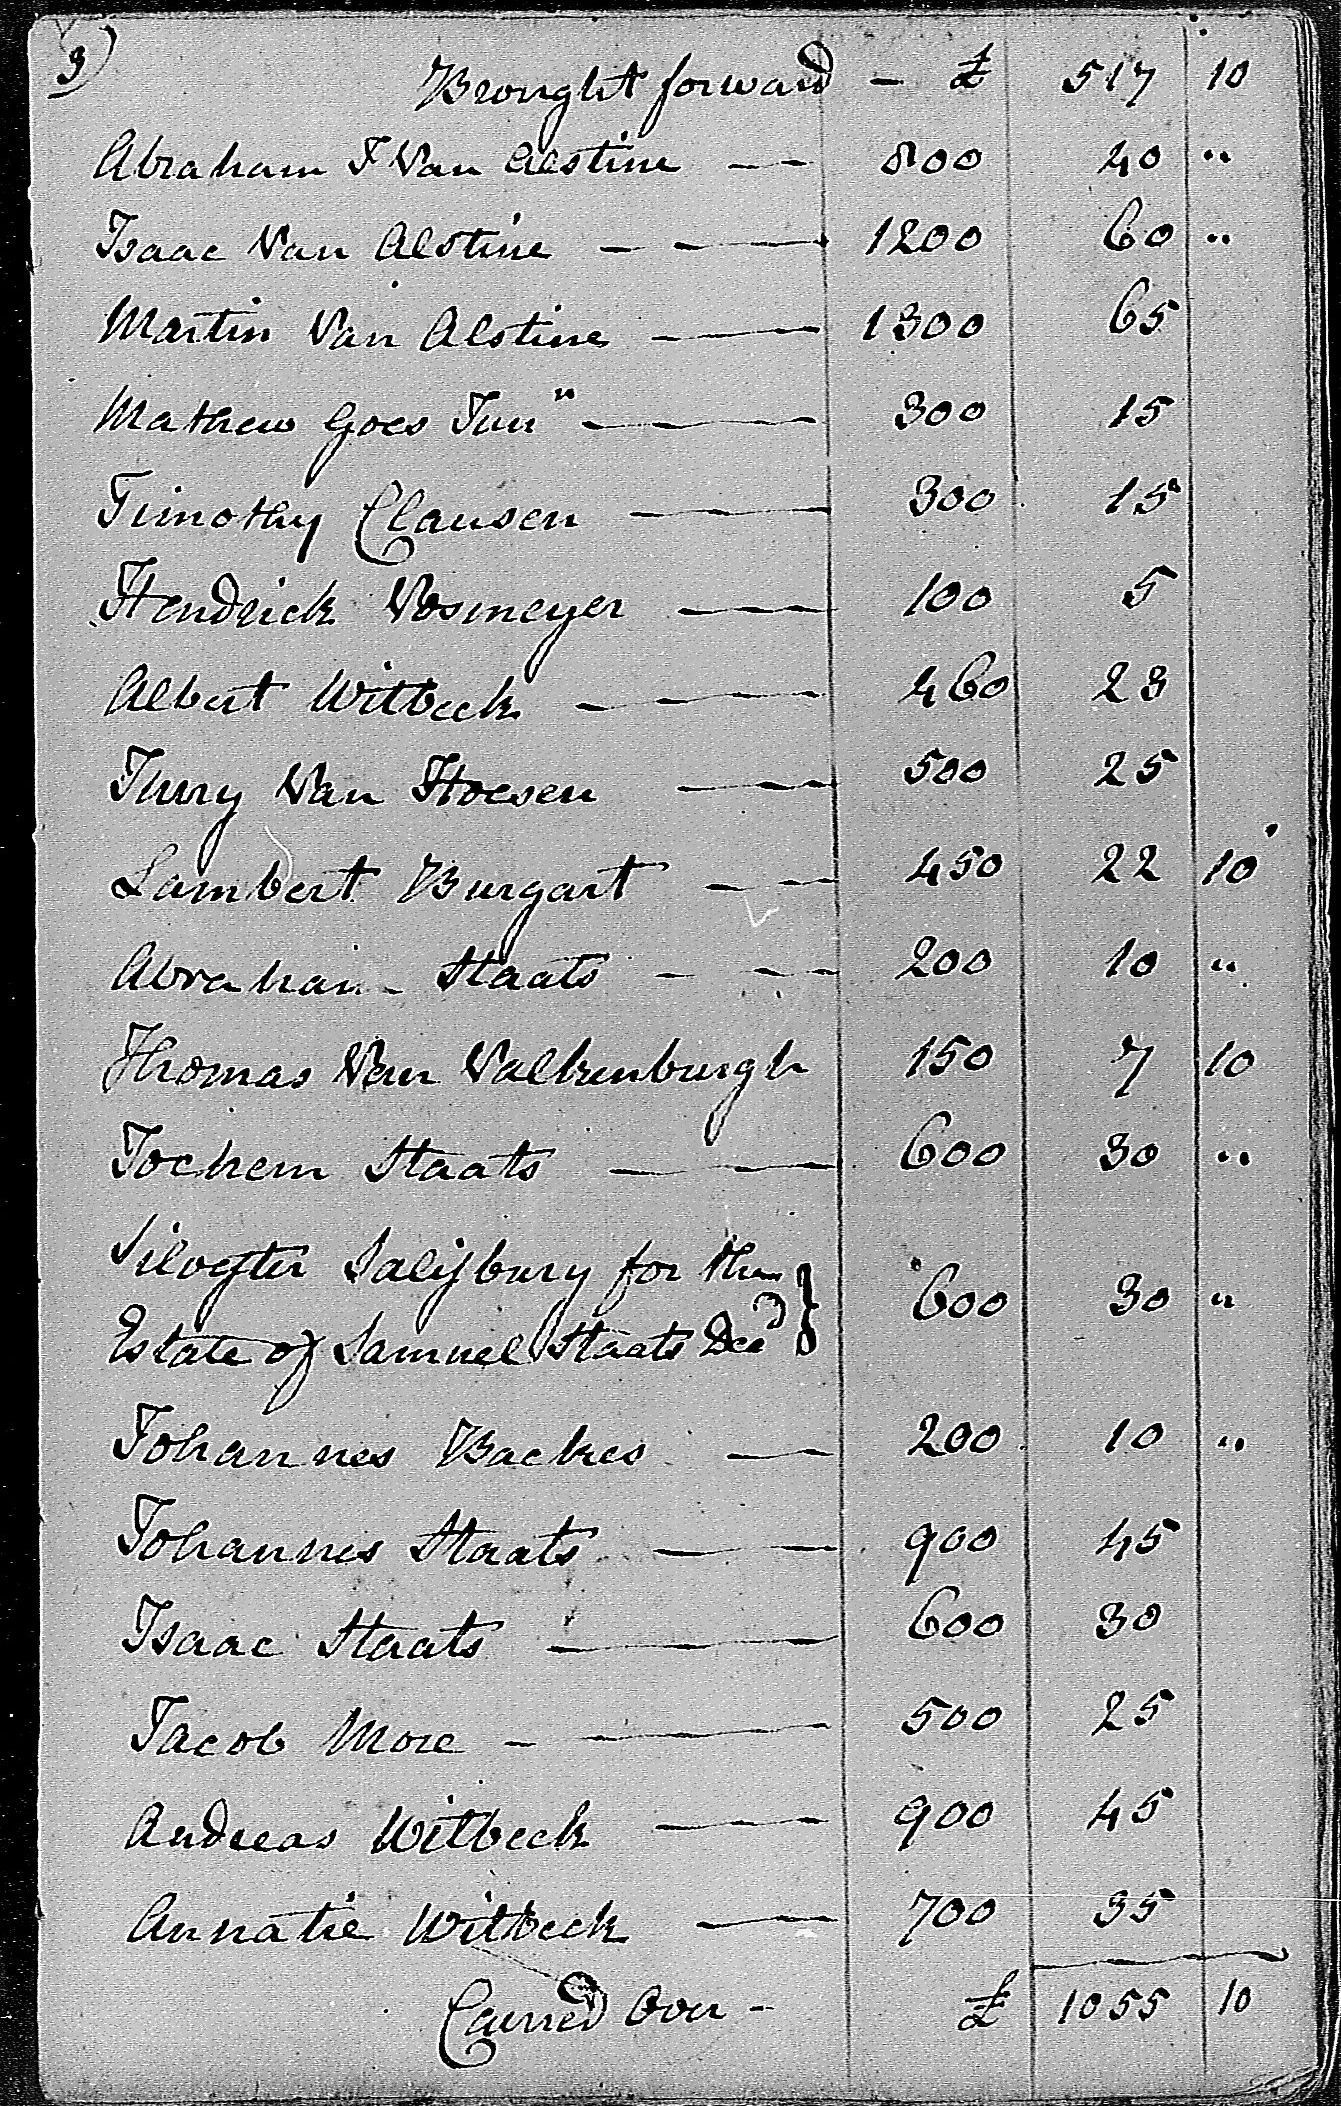 3)
Brought forward - £ 517 10
Abraham J Van Alstine - - 800 40 "
Isaac Van Alstine - - - 1200 60 "
Martin Van Alstine - - 1300 65
Mathew Goes Junr - - 300 15
Timothy Clausen - - 300 15
Hendrick Vosmeyer - - 100 5
Albert Witbeck - - - 460 23
Jurry Van Hoesen - - 500 25
Lambert Burgart - - 450 22 10
Abraham - Staats - - - 200 10 "
Thomas Van Valkenburgh 150 7 10
Jochem Staats - - - 600 30 "
Silvester Salisbury for the
Estate of Samuel Staats Decd } 600 30 "
Johannes Backes - - 200 10 "
Johannes Staats - - - 900 45
Isaac Staats - - - 600 30
Jacob More - - - 500 25
Andreas Witbeck - - - 900 45
Annatie Witbeck - - 700 35
Carried Over - £ 1055 10